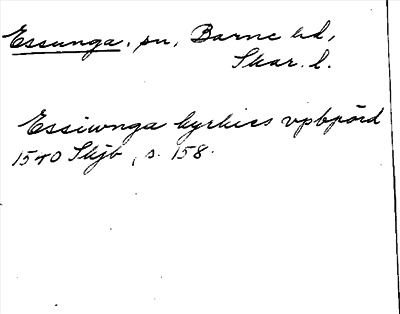 Essunga, sn, Barne hd,
Skar. l.
Essiwnga kyrkies vpbyörd
1540 Skjb, s. 158.